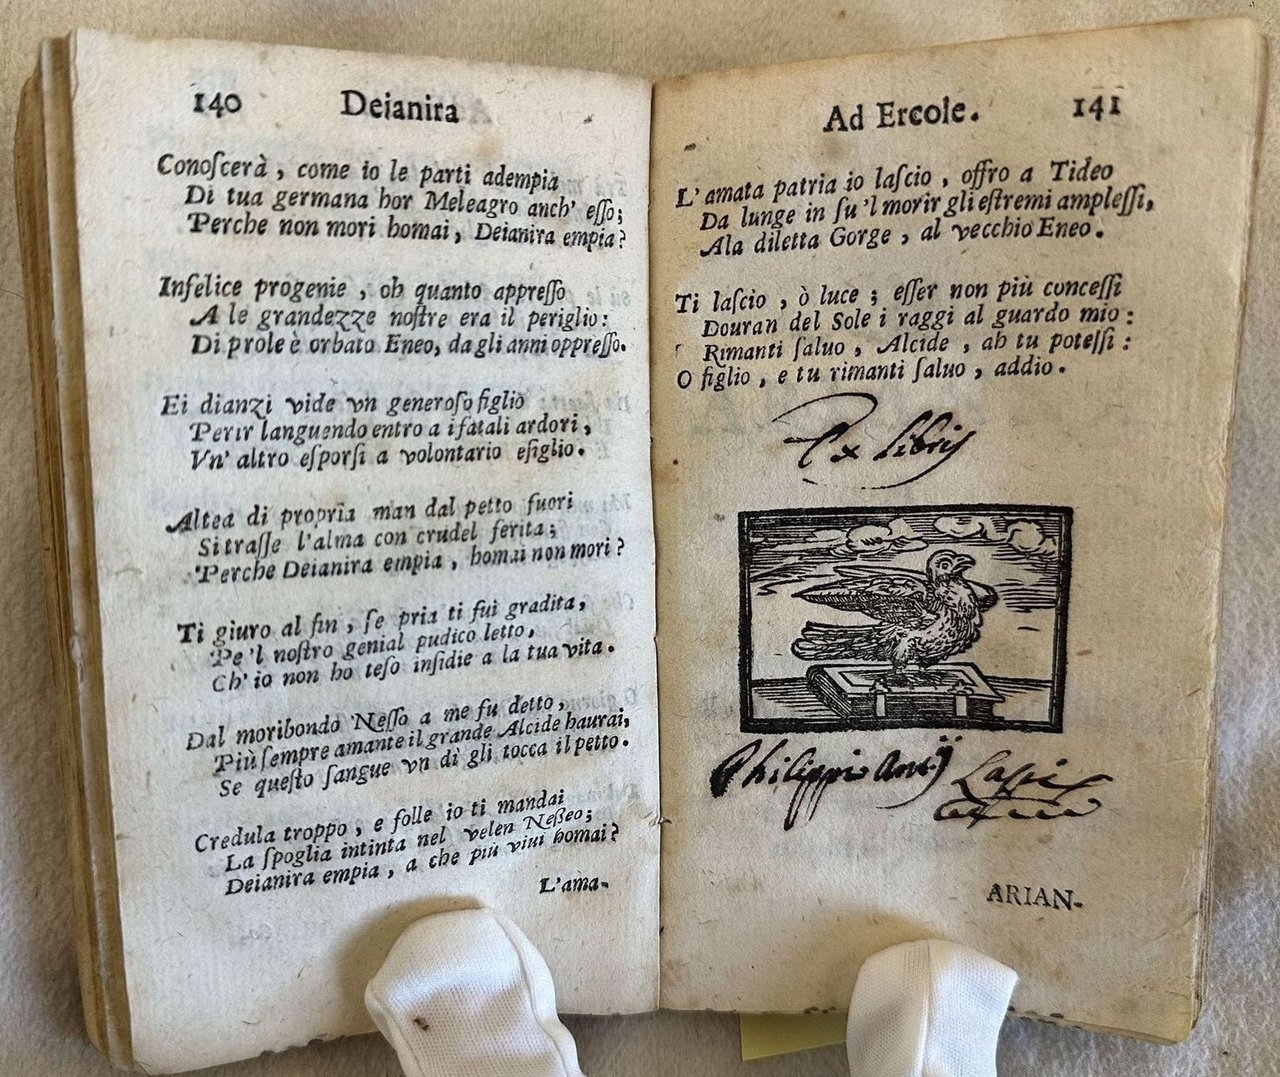 140 Deianira
Conoſcerà, come io le parti adempia
Di tua germana hor Meleagro anch' eſſo;
Perche non mori homai, Deianira empia?
Infelice progenie, oh quanto appreſſo
A le grandezze noſtre era il periglio:
Di prole è orbato Eneo, da gli anni oppreſſo.
Ei dianzi vide vn generoſo figlio
Perir languendo entro a i fatali ardori,
Vn' altro eſporſi a volontario eſiglio.
Altea di propria man dal petto fuori
Si traſſe l'alma con crudel ferita;
Perche Deianira empia, homai non mori?
Ti giuro al fin, ſe pria ti fui gradita,
Pe 'l noſtro genial pudico letto,
Ch' io non ho teſo inſidie a la tua vita.
Dal moribondo Neſſo a me fu detto,
Più ſempre amante il grande Alcide haurai,
Se queſto ſangue vn dì gli tocca il petto.
Credula troppo, e folle io ti mandai
La ſpoglia intinta nel velen Neßeo;
Deianira empia, a che più viui homai?
L'ama-
Ad Ercole. 141
L'amata patria io laſcio, offro a Tideo
Da lunge in ſu 'l morir gli eſtremi ampleſſi,
A la diletta Gorge, al vecchio Eneo.
Ti laſcio, ò luce; eſſer non più conceſſi
Douran del Sole i raggi al guardo mio:
Rimanti ſaluo, Alcide, ah tu poteſſi:
O figlio, e tu rimanti ſaluo, addio.
Ex libris
Philippi Antij
ARIAN-